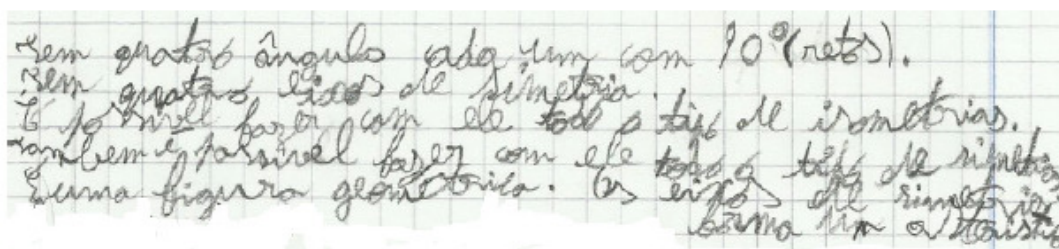 Tem quatro ângulo cada um com 90º (retos).
Tem quatro eixos de simetria.
É possivel fazer com ele todo o tipo de isometrias.
Tambem é possivel fazer com ele todo o tipo de simetria
É uma figura geométrica. Os eixos de simetria
forma um